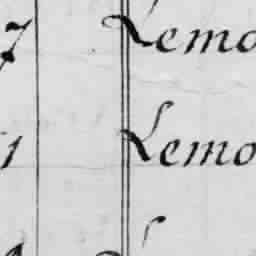 7 Lemo
1 Lemo